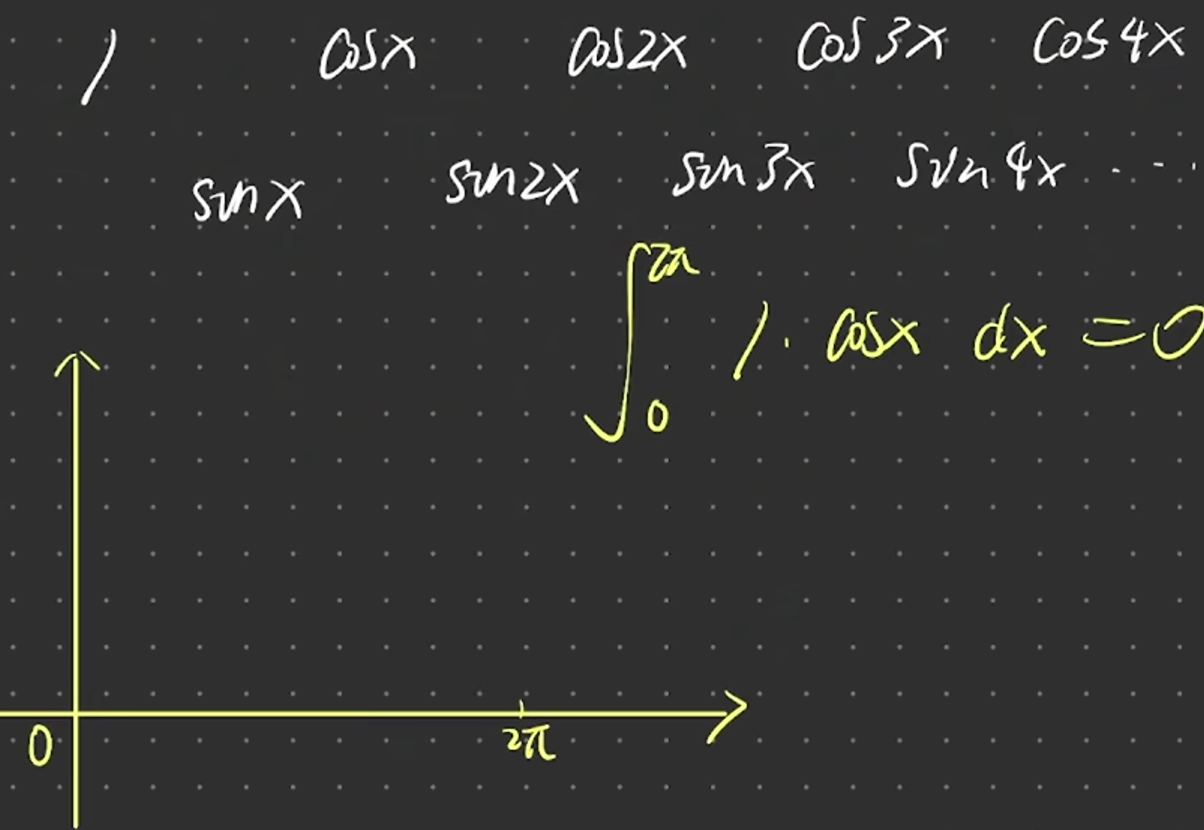 1 cosx cos2x cos3x cos4x
sinx sin2x sin3x sin4x ...
∫₀²π 1·cosx dx = 0
0 2π